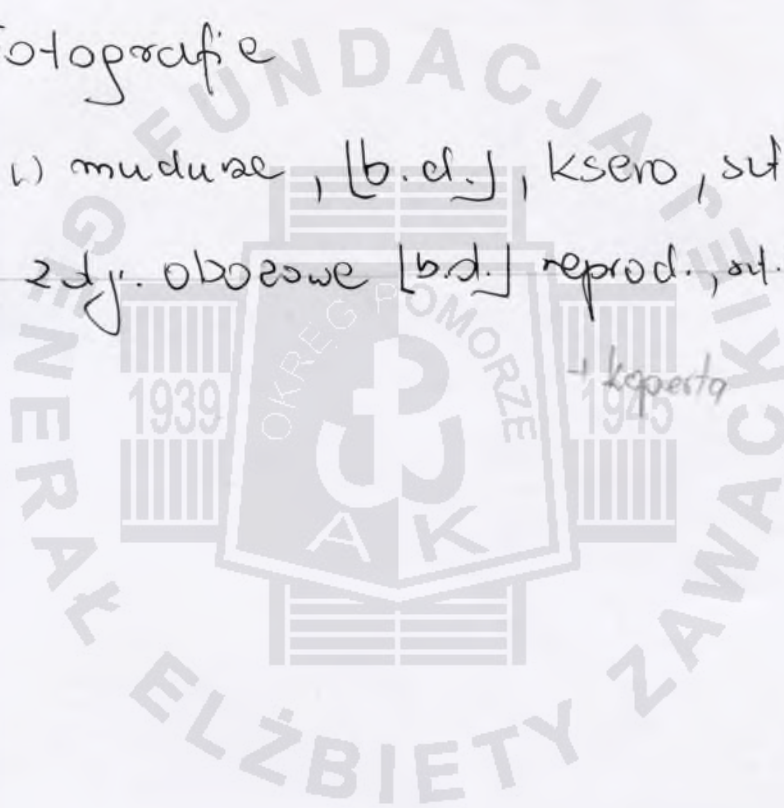 Fotografie
1.) mundurze, [b.d.], ksero, szt.
zdj. obozowe [b.d.] reprod., szt.
+ koperta
FUNDACJA GENERAŁ ELŻBIETY ZAWACKIEJ
OKRĘG POMORZE
1939
1945
AK